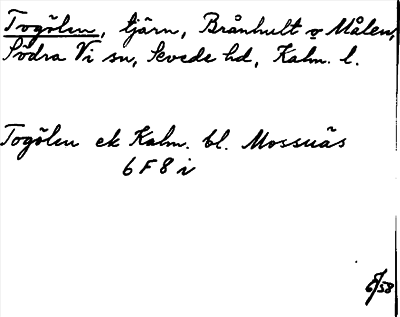 Togölen, tjärn, Brånhult o Målen,
Södra Vi sn, Sevede hd, Kalm. l.
Togölen ek Kalm. bl. Mossnäs
6 F 8 i
6/58